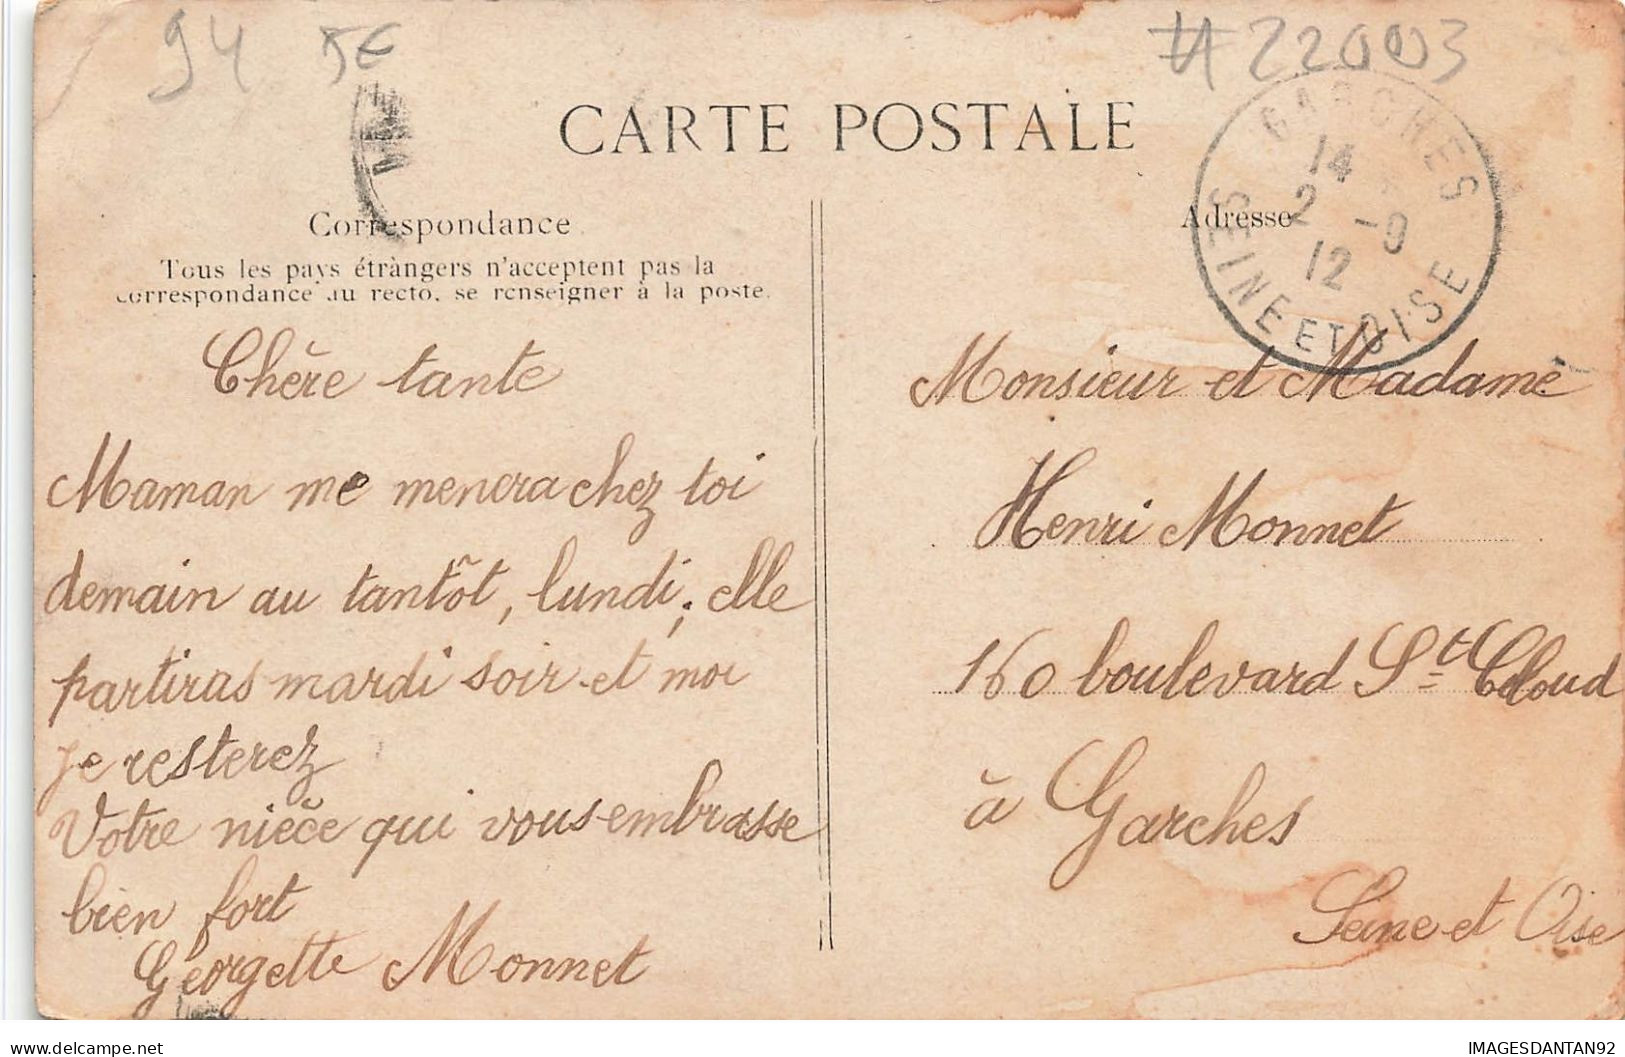 94 5€
#22003
CARTE POSTALE
GARCHES
14
2 -9
12
SEINE ET OISE
Correspondance
Adresse
Tous les pays étràngers n'acceptent pas la
correspondance au recto, se renseigner à la poste.
Chère tante
Maman me menera chez toi
demain au tantôt, lundi, elle
partiras mardi soir et moi
je resterez
Votre nièce qui vous embrasse
bien fort
Georgette Monnet
Monsieur et Madame
Henri Monnet
160 boulevard St Cloud
à Garches
Seine et Oise
IMAGESDANTAN92